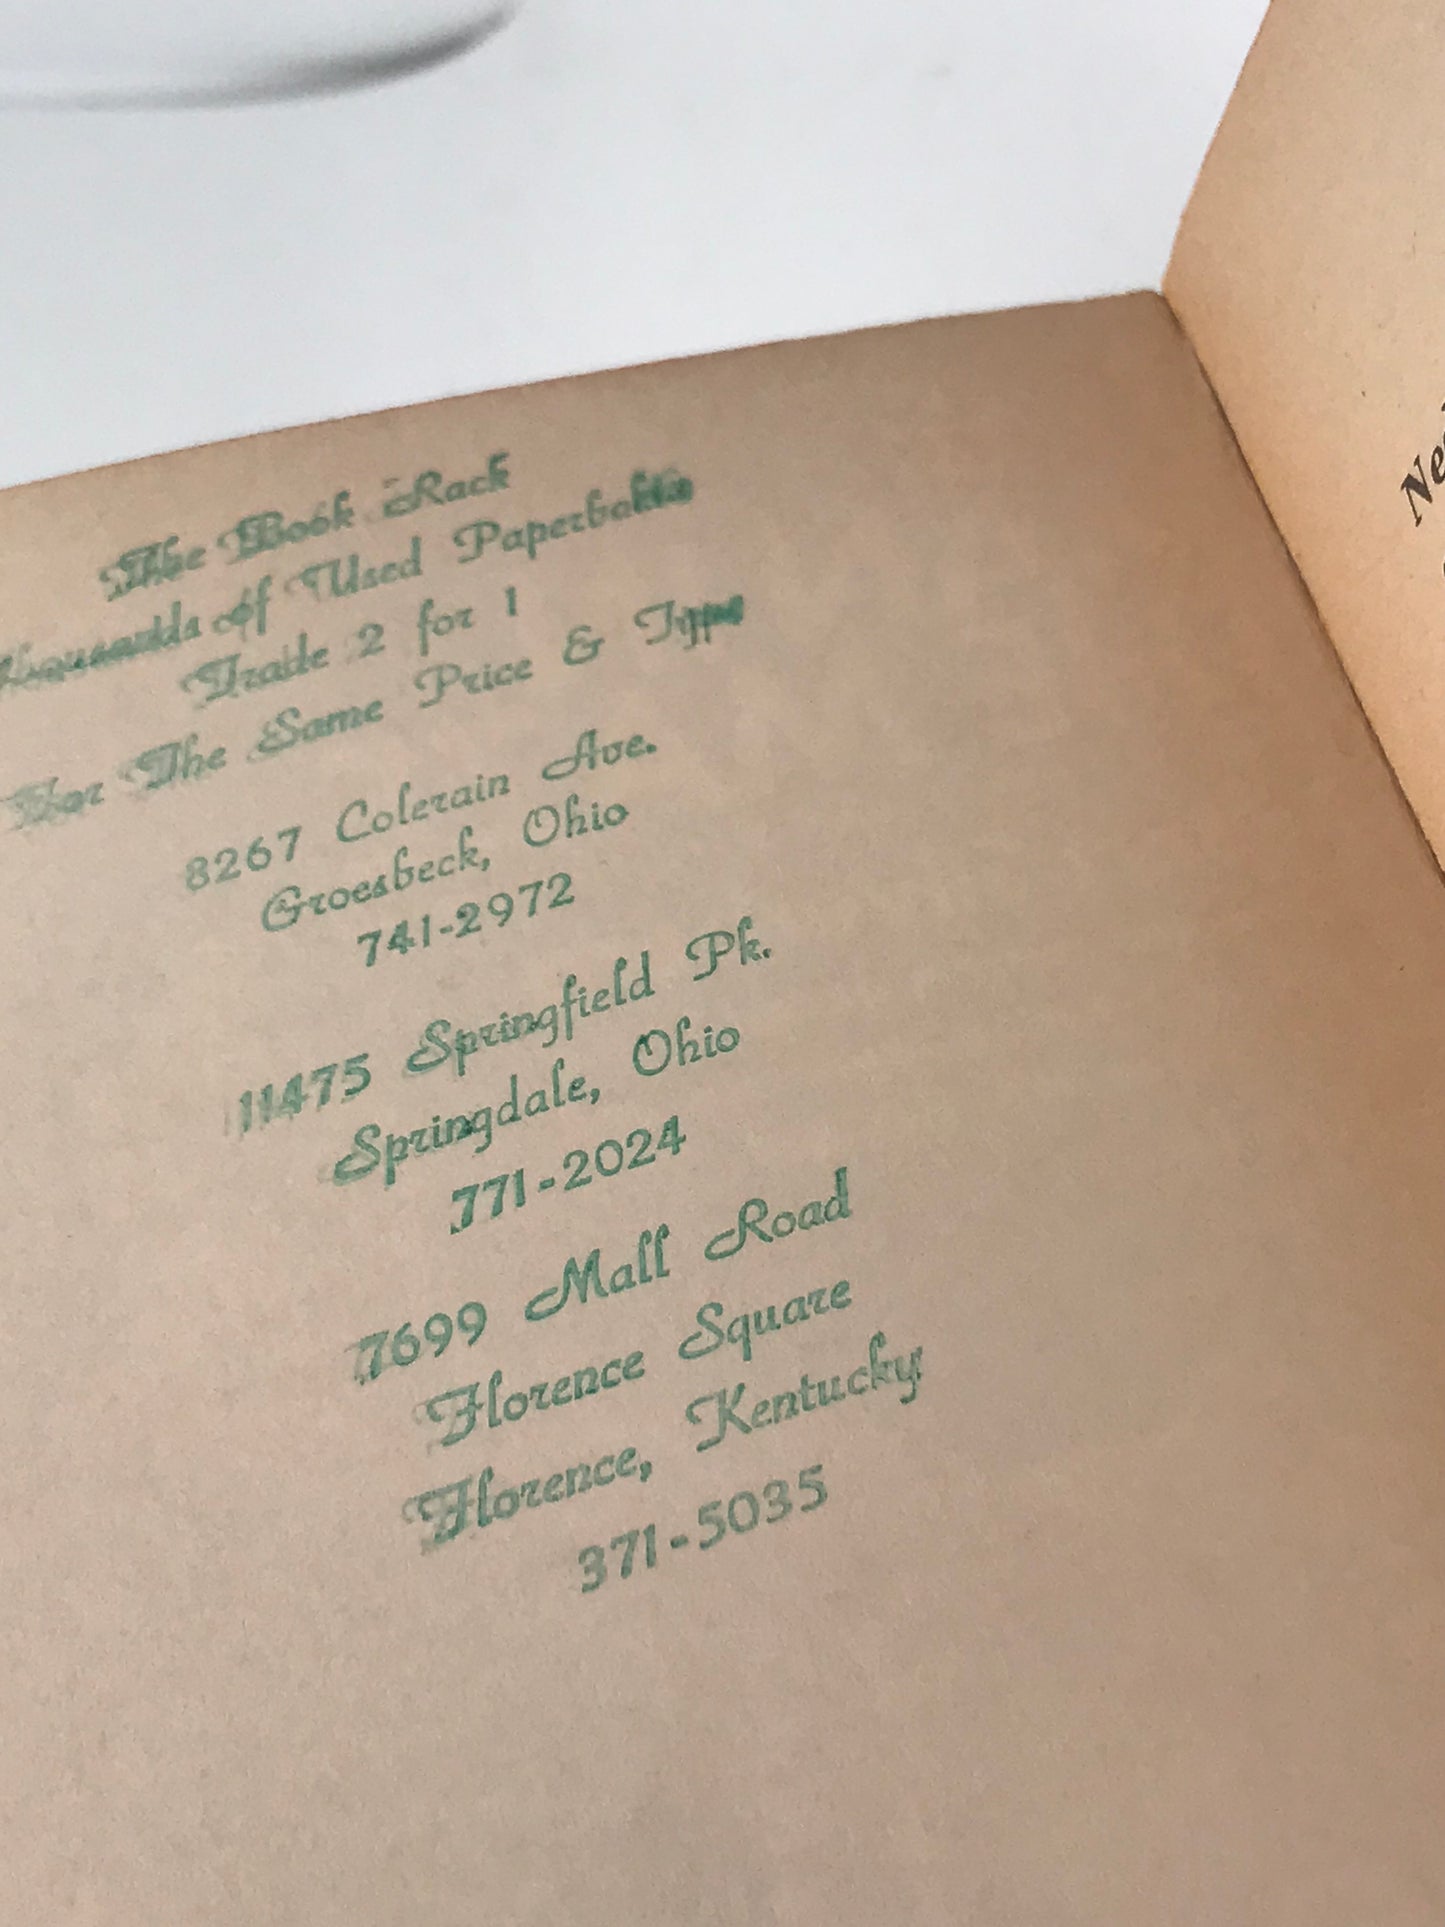 The Book Rack
Thousands of Used Paperbacks
Trade 2 for 1
For The Same Price & Type
8267 Colerain Ave.
Groesbeck, Ohio
741-2972
11475 Springfield Pk.
Springdale, Ohio
771-2024
7699 Mall Road
Florence Square
Florence, Kentucky
371-5035